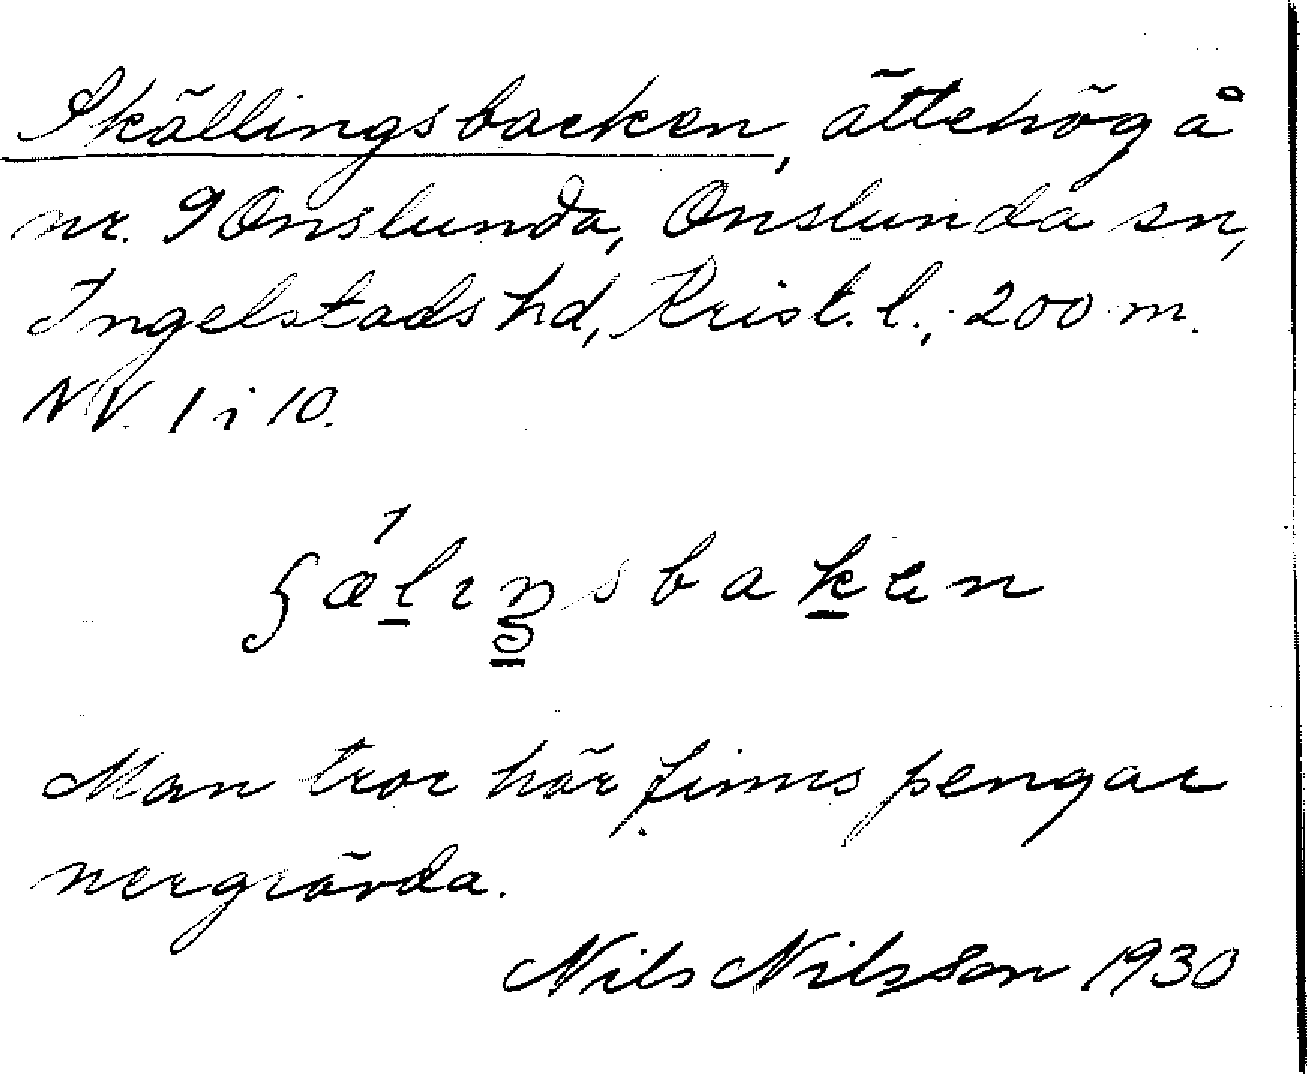 Skällingsbacken, ättehög å
nr. 9 Onslunda, Onslunda sn,
Ingelstads hd, Krist. l., 200 m.
NV. 1 i 10.
Man tror här finns pengar
nergrävda.
Nils Nilsson 1930